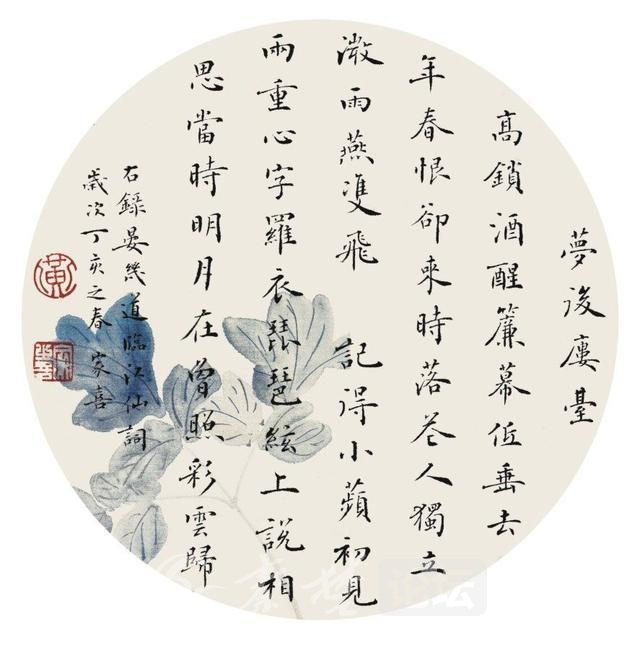 夢後廔臺
高鎖酒醒簾幕低垂去
年春恨卻來時落花人獨立
溦雨燕雙飛 記得小蘋初見
兩重心字羅衣琵琶絃上說相
思當時明月在曾照彩雲歸
右錄晏幾道臨江仙詞
歲次丁亥之春 家喜
黃
论坛